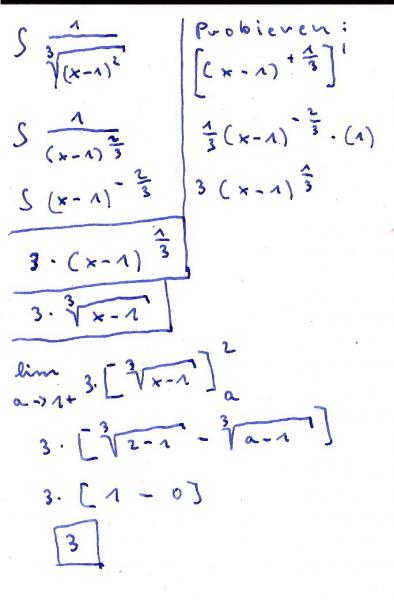 ∫ 1/∛((x-1)²)
∫ 1/(x-1)^(2/3)
∫ (x-1)^(-2/3)
3 · (x-1)^(1/3)
3 · ∛(x-1)
Probieren:
[(x-1)^(+1/3)]'
1/3 (x-1)^(-2/3) · (1)
3 (x-1)^(1/3)
lim a→1+ 3·[∛(x-1)]²ₐ
3 · [∛(2-1) - ∛(a-1)]
3 · [1 - 0]
3